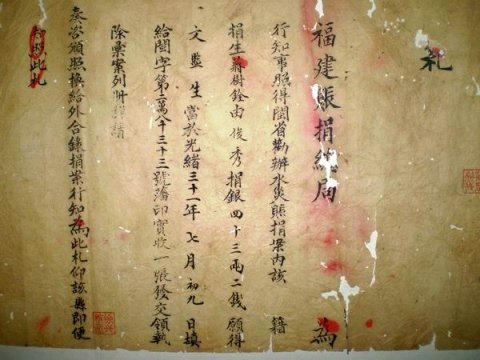 札
福建賑捐總局 為
行知事照得閩省勸辦水災賑捐案內該 籍
捐生蔣樹銓由俊秀捐銀四十三兩二錢願得
文監生當於光緒三十一年七月初九日填
給閩字第三萬八千三十三號藩印實收一張發交領執
除彙案列冊詳請
奏咨頒照換給外合錄捐案行知為此札仰該縣即便
知照此札